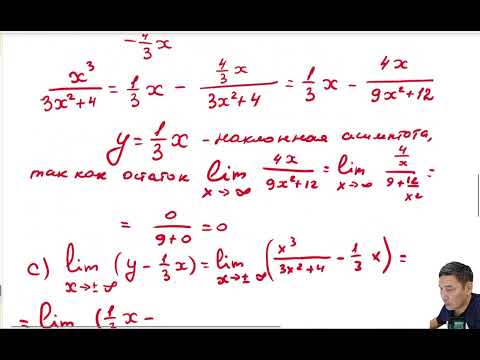 -4/3 x
x³/(3x²+4) = 1/3 x - (4/3 x)/(3x²+4) = 1/3 x - 4x/(9x²+12)
y = 1/3 x - наклонная асимптота,
так как остаток lim x→∞ 4x/(9x²+12) = lim x→∞ (4/x)/(9+12/x²) =
= 0/(9+0) = 0
c) lim x→±∞ (y - 1/3 x) = lim x→±∞ (x³/(3x²+4) - 1/3 x) =
= lim (1/3 x -